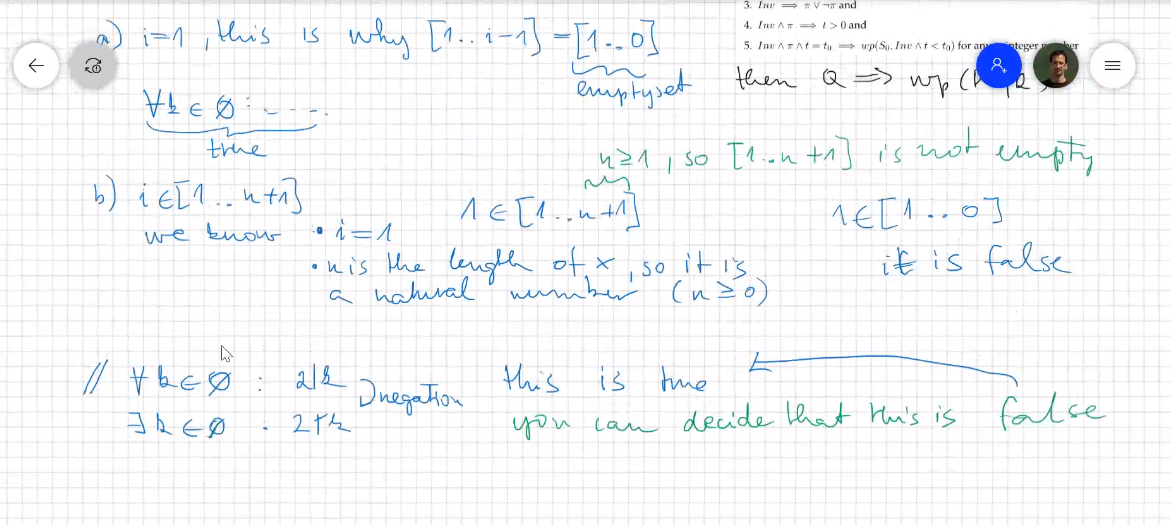 3. Inv ⟹ π ∨ ¬π and
4. Inv ∧ π ⟹ t > 0 and
5. Inv ∧ π ∧ t = t₀ ⟹ wp(S₀, Inv ∧ t < t₀) for any integer number
a) i=1, this is why [1..i-1] = [1..0]
emptyset
then Q ⟹ wp(
∀k ∈ ∅: - - - .
true
n≥1, so [1..n+1] is not empty
b) i∈[1..n+1]
1∈[1..n+1]
1∈[1..0]
we know • i=1
• n is the length of x, so it is
a natural number (n≥0)
it is false
// ∀k∈∅ : 2|k
negation
this is true
∃k∈∅ : 2∤k
you can decide that this is false